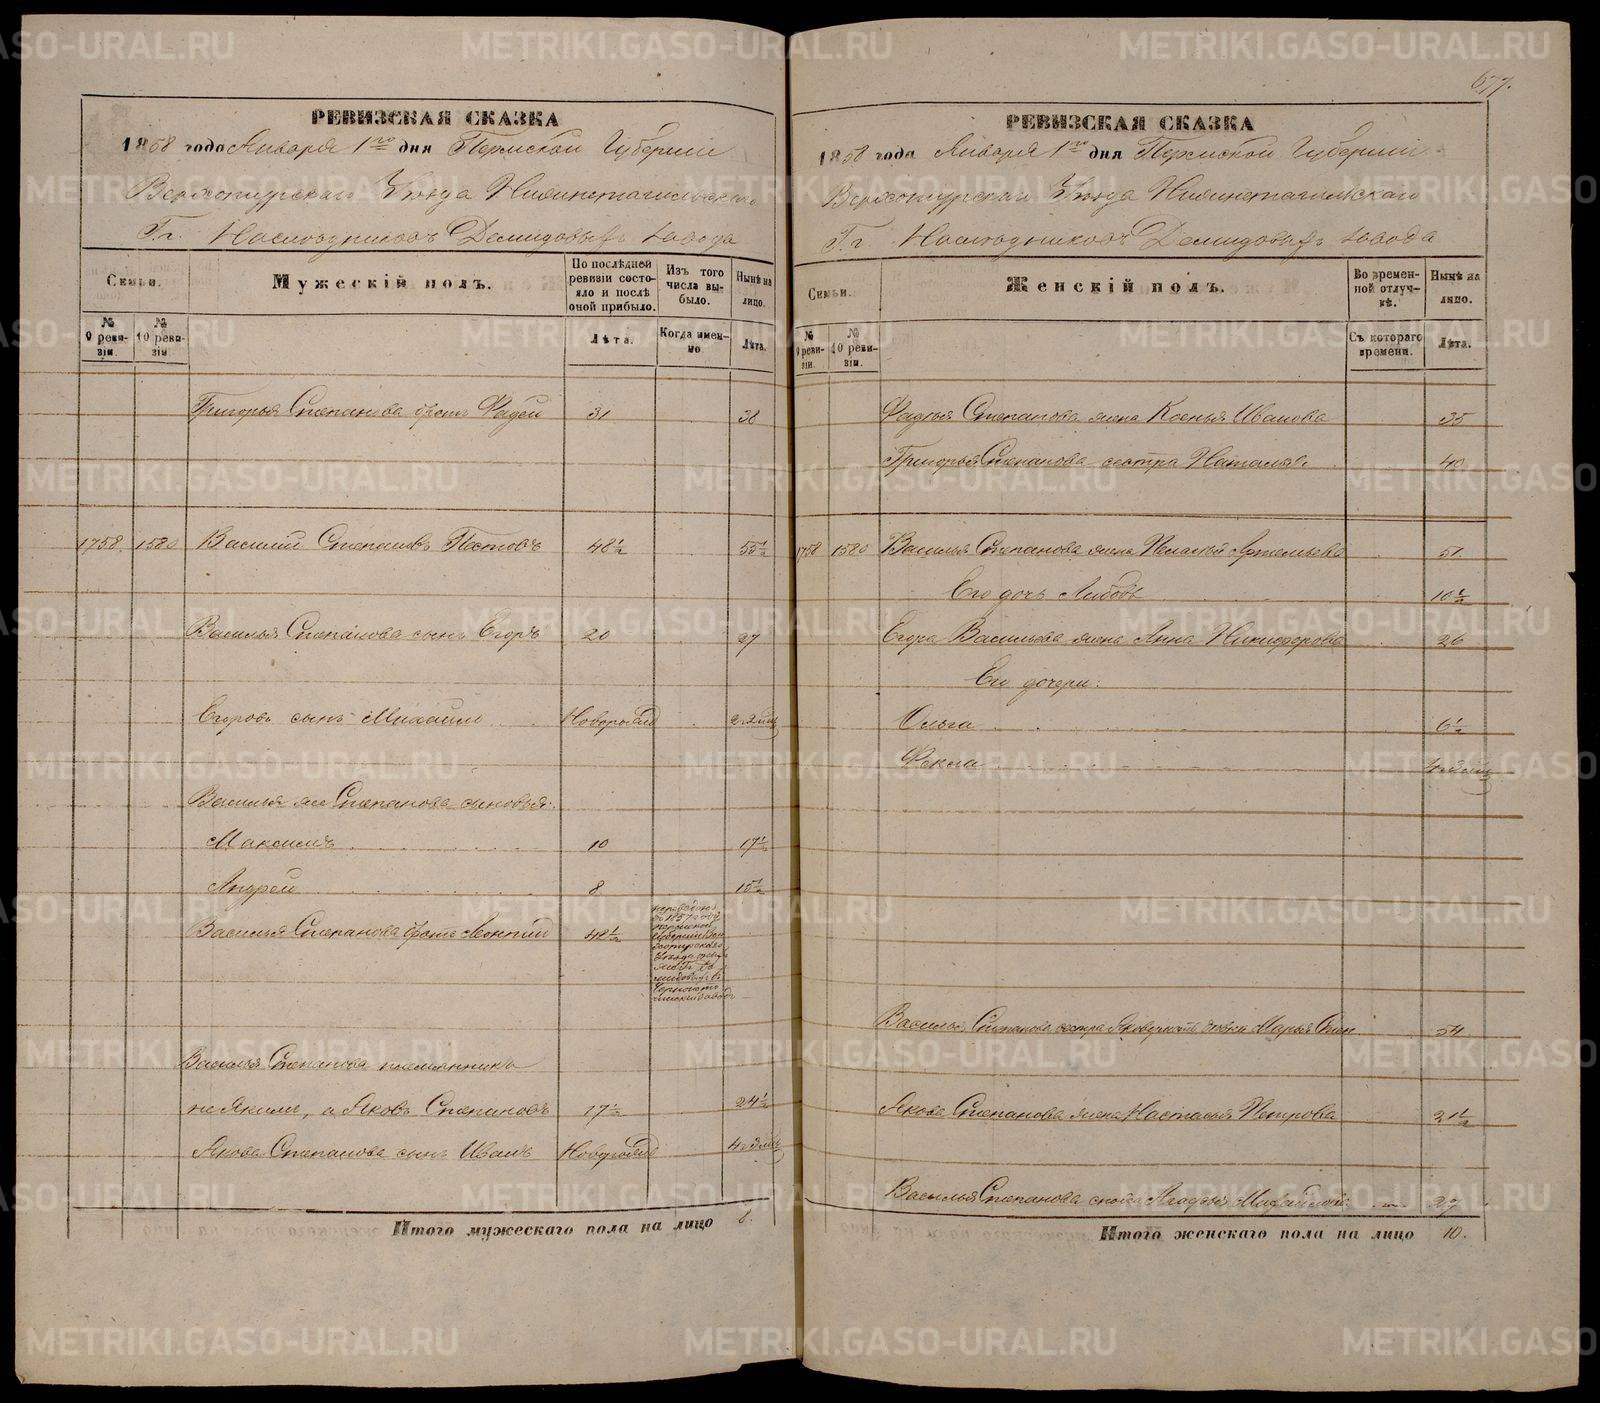 677.
РЕВИЗСКАЯ СКАЗКА
1858 года Января 1го дня Пермской Губернии
Верхотурскаго Уезда Нижнетагильскаго
Г.г. Наследниковъ Демидовыхъ завода
Семьи.
Мужескій полъ.
По послѣдней ревизіи состояло и послѣ оной прибыло.
Изъ того числа выбыло.
Нынѣ на лицо.
№ 9 ревизіи.
№ 10 ревизіи
Лѣта.
Когда именно.
Лѣта.
Григорья Степанова братъ Фадей 31 38
1758. 1580 Василий Степановъ Постовъ 48½ 55½
Василья Степанова сынъ Егоръ 20 27
Егоровъ сынъ Михаило Новорожд 2 недѣли
Василья же Степанова сыновья:
Максимъ 10 17½
Андрей 8 15½
Василья Степанова братъ Леонтий 42½
въ 1857 году
Василья Степанова племянникъ
не Якимъ, а Яковъ Степановъ 17½ 24½
Якова Степанова сынъ Иванъ Новорожд 4 недѣли
Итого мужескаго пола на лицо 8.
РЕВИЗСКАЯ СКАЗКА
1858 года Января 1го дня Пермской Губернии
Верхотурскаго Уезда Нижнетагильскаго
Г.г. Наследниковъ Демидовыхъ завода
Семьи.
Женскій полъ.
Во временной отлучкѣ.
Нынѣ на лицо.
№ 9 ревизіи.
№ 10 ревизіи.
Съ котораго времени.
Лѣта.
Фадея Степанова жена Ксенья Иванова 35
Григорья Степанова сестра Наталья 40
1758 1580 Василья Степанова жена Пелагея Артемьева 51.
Его дочь Любовь 10½
Егора Васильева жена Анна Никифорова 26
Его дочери:
Ольга 6½
Фекла 4 недѣли
Василья Степанова сестра девка Марья Степ 54
Якова Степанова жена Настасья Петрова 21½
Василья Степанова сноха Агафья 27
Итого женскаго пола на лицо 10.
METRIKI.GASO-URAL.RU